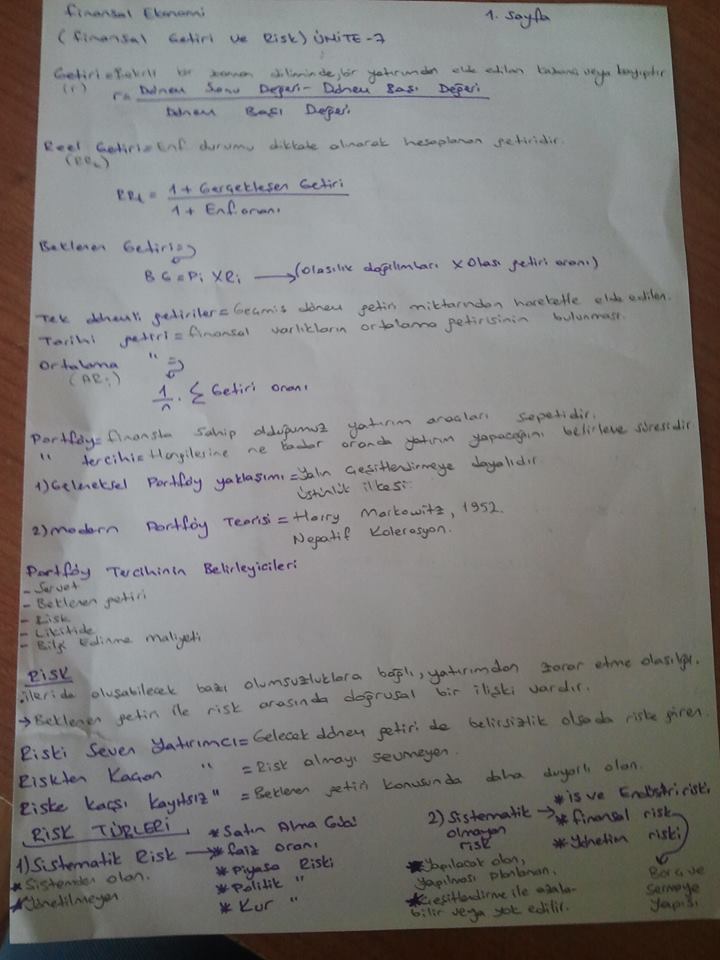 Finansal Ekonomi
1. Sayfa
(Finansal Getiri ve Risk) ÜNİTE-7
Getiri = Belirli bir zaman diliminde, bir yatırımdan elde edilen kazanç veya kayıptır
(r)
r = Dönem Sonu Değeri - Dönem Başı Değeri
Dönem Başı Değeri
Reel Getiri = Enf. durumu dikkate alınarak hesaplanan getiridir.
1 + Gerçekleşen Getiri
1 + Enf. oranı
Beklenen Getiri =>
BG = Pi X Ri → (Olasılık dağılımları X Olası getiri oranı)
Tek dönemli getiriler = Geçmiş dönem getiri miktarından hareketle elde edilen.
Tarihi getiri = finansal varlıkların ortalama getirisinin bulunması.
Ortalama " =>
(ARi)
1/n . Σ Getiri Oranı
Portföy = finansta sahip olduğumuz yatırım araçları sepetidir.
" tercihi = Hangilerine ne kadar oranda yatırım yapacağını belirleme süresidir
1) Geleneksel Portföy yaklaşımı = Yalın Çeşitlendirmeye dayalıdır.
Üstünlük ilkesi
2) modern Portföy Teorisi = Harry Markowitz, 1952.
Negatif Kolerasyon.
Portföy Tercihinin Belirleyicileri
- Servet
- Beklenen getiri
- Risk
- Likitide
- Bilgi Edinme maliyeti
RİSK
ileride oluşabilecek bazı olumsuzluklara bağlı, yatırımdan zarar etme olasılığı.
→ Beklenen getiri ile risk arasında doğrusal bir ilişki vardır.
Riski Seven Yatırımcı = Gelecek dönem getiri de belirsizlik olsada riske giren.
Riskten Kaçan " = Risk almayı sevmeyen.
Riske karşı kayıtsız " = Beklenen getiri konusunda daha duyarlı olan.
RİSK TÜRLERİ
1) Sistematik Risk →
* Sistemden olan.
* Yönetilmeyen
* Satın Alma Gücü
* faiz Oranı
* Piyasa Riski
* Politik "
* Kur "
2) Sistematik olmayan risk →
* iş ve Endüstri riski
* finansal risk
* Yönetim riski
Borç ve
Sermaye
Yapısı
* Yapılacak olan,
yapılması planlanan.
* Çeşitlendirme ile azala-
bilir veya yok edilir.